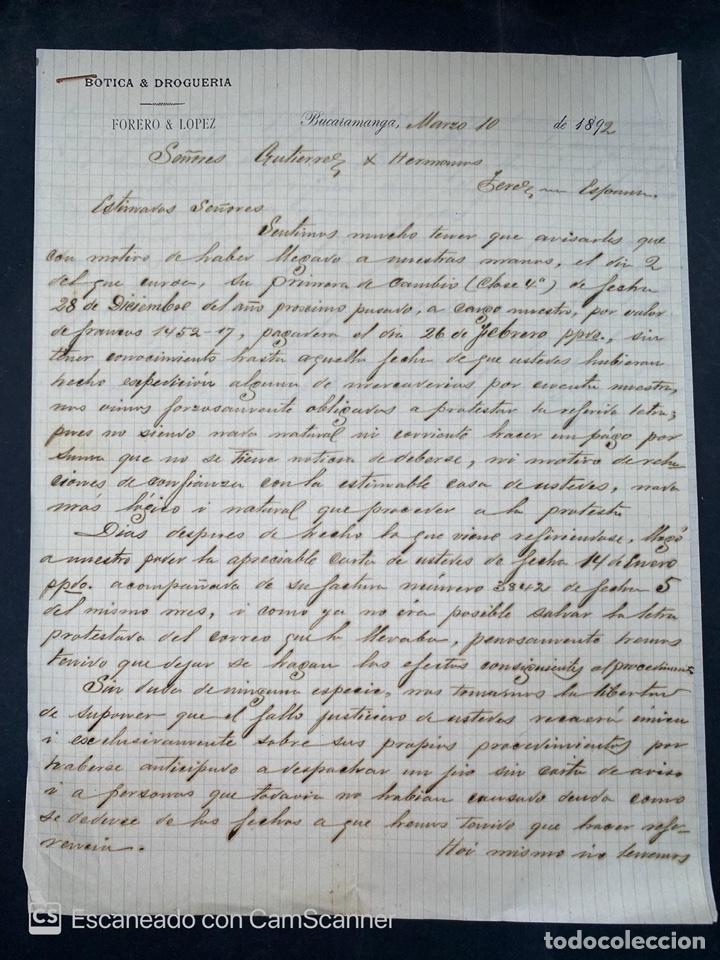 BOTICA & DROGUERIA
FORERO & LOPEZ
Bucaramanga, Marzo 10 de 1892
Señores Gutierrez & Hermanos
Jerez en España.
Estimados Señores
Sentimos mucho tener que avisarles que
con motivo de haber llegado a nuestras manos, el dia 2
del que cursa, su primera de cambio (Clase 4ª) de fecha
28 de Diciembre del año prosimo pasado, a cargo nuestro, por valor
de francos 1452-17, pagadera el dia 26 de Febrero ppdo., sin
tener conocimiento hasta aquella fecha de que ustedes hubieran
hecho espedición alguna de mercaderias por cuenta nuestra,
nos vimos forzosamente obligados a protestar la referida letra;
pues no siendo nada natural ni corriente hacer un págo por
suma que no se tiene noticia de deberse, ni motivo de rela-
ciones de confianza con la estimable casa de ustedes, nada
más lógico i natural que proceder a la protesta
Dias despues de hecho lo que viene refiriendose, llegó
a nuestro poder la apreciable carta de ustedes de fecha 14 de Enero
ppdo. acompañada de su factura número 3842 de fecha 5
del mismo mes, i como ya no era posible salvar la letra
protestada del correo que la llevaba, penosamente hemos
tenido que dejar se hagan los efectos consiguientes al procedimiento
Sin duda de ninguna especie, nos tomamos la libertad
de suponer que el fallo justiciero de ustedes recaerá única
i esclusivamente sobre sus propios procedimientos por
haberse anticipado a despachar un jiro sin carta de aviso
i a personas que todavia no habian causado deuda como
se deduce de las fechas a que hemos tenido que hacer refe-
rencia. Hoi mismo no tenemos
CS Escaneado con CamScanner
todocoleccion